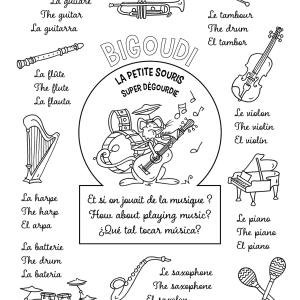 La guitare
The guitar
La guitarra
Le tambour
The drum
El tambor
BIGOUDI
LA PETITE SOURIS
SUPER DÉGOURDIE
La flûte
The flute
La flauta
Le violon
The violin
El violin
La harpe
The harp
El arpa
Et si on jouait de la musique ?
How about playing music?
¿Qué tal tocar música?
Le piano
The piano
El piano
La batterie
The drum
La bateria
Le saxophone
The saxophone